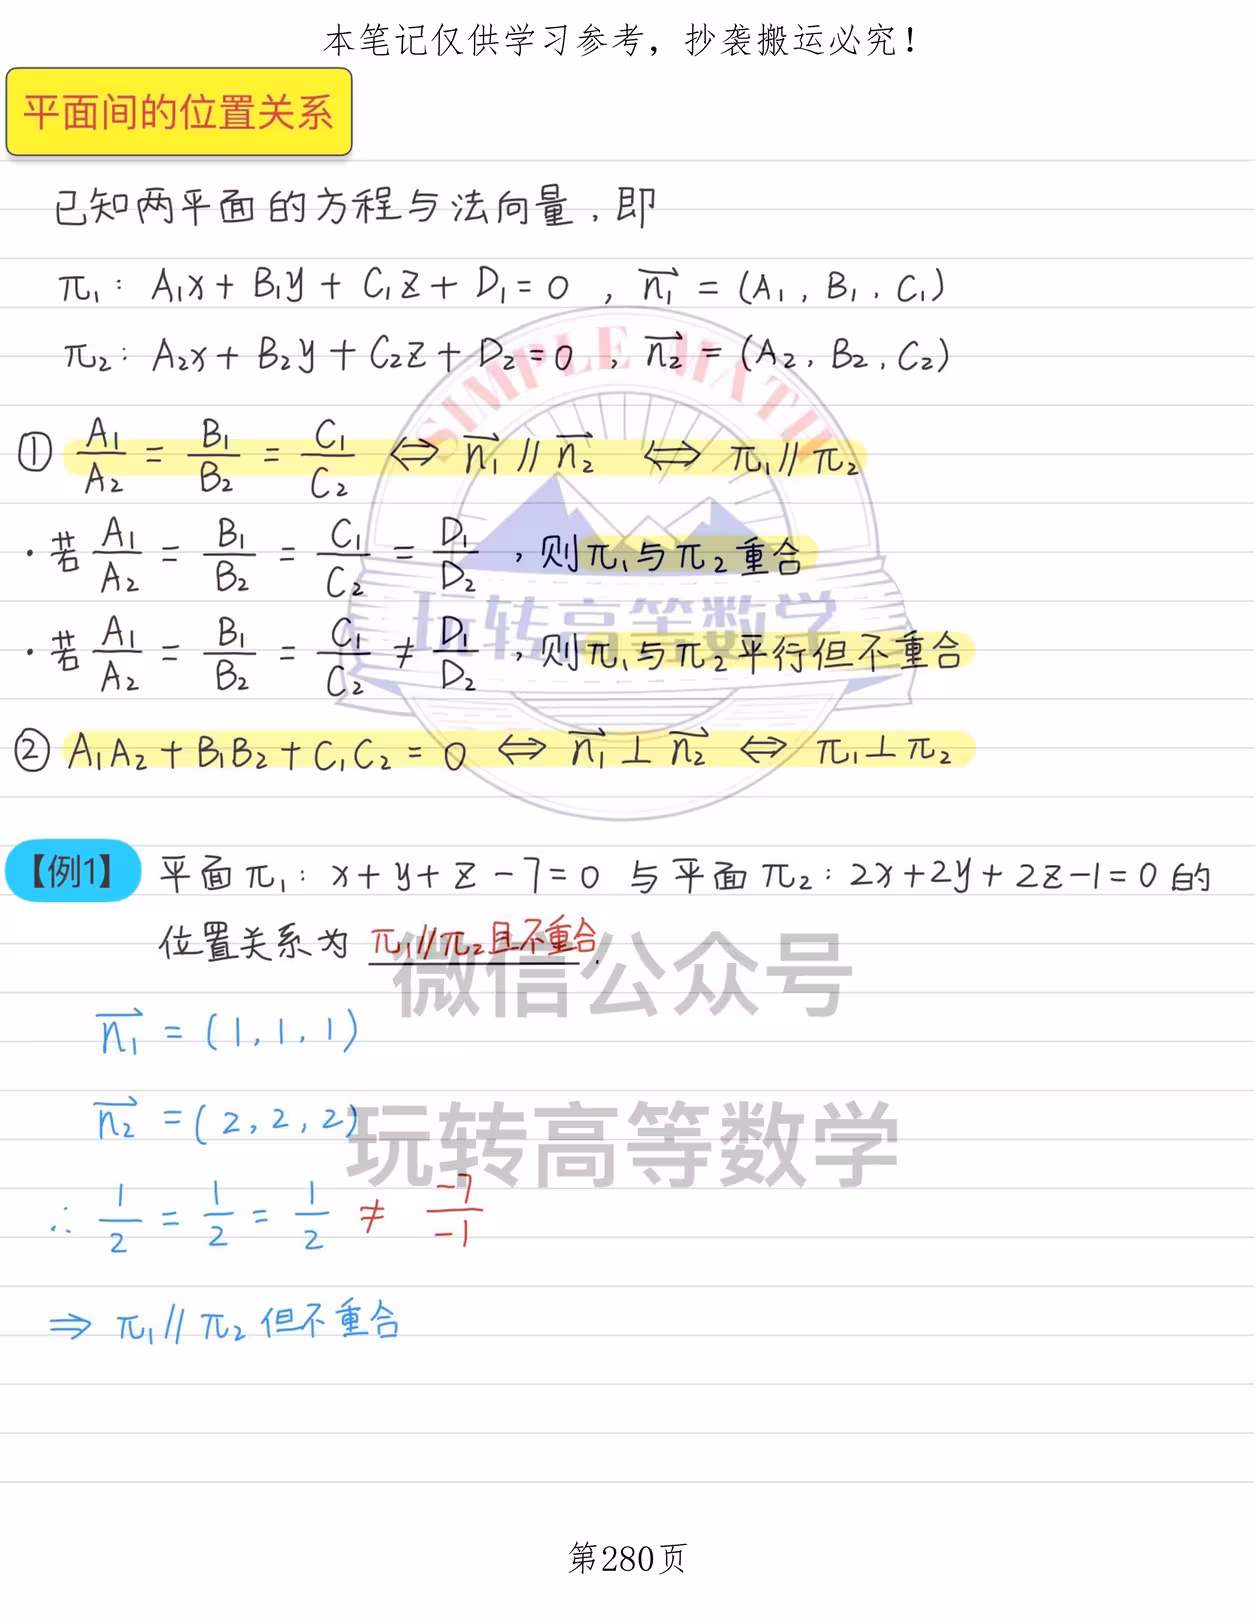 本笔记仅供学习参考，抄袭搬运必究！
平面间的位置关系
已知两平面的方程与法向量，即
π₁：A₁x + B₁y + C₁z + D₁ = 0 ，n₁→ = (A₁, B₁, C₁)
π₂：A₂x + B₂y + C₂z + D₂ = 0 ，n₂→ = (A₂, B₂, C₂)
SIMPLE MATH
① A₁/A₂ = B₁/B₂ = C₁/C₂ ⇔ n₁→ ∥ n₂→ ⇔ π₁ ∥ π₂
· 若 A₁/A₂ = B₁/B₂ = C₁/C₂ = D₁/D₂ ，则π₁与π₂重合
玩转高等数学
· 若 A₁/A₂ = B₁/B₂ = C₁/C₂ ≠ D₁/D₂ ，则π₁与π₂平行但不重合
② A₁A₂ + B₁B₂ + C₁C₂ = 0 ⇔ n₁→ ⊥ n₂→ ⇔ π₁ ⊥ π₂
【例1】 平面π₁：x + y + z − 7 = 0 与平面π₂：2x + 2y + 2z − 1 = 0 的
位置关系为 π₁∥π₂且不重合.
微信公众号
n₁→ = (1, 1, 1)
n₂→ = (2, 2, 2)
玩转高等数学
∴ 1/2 = 1/2 = 1/2 ≠ −7/−1
⇒ π₁ ∥ π₂ 但不重合
第280页